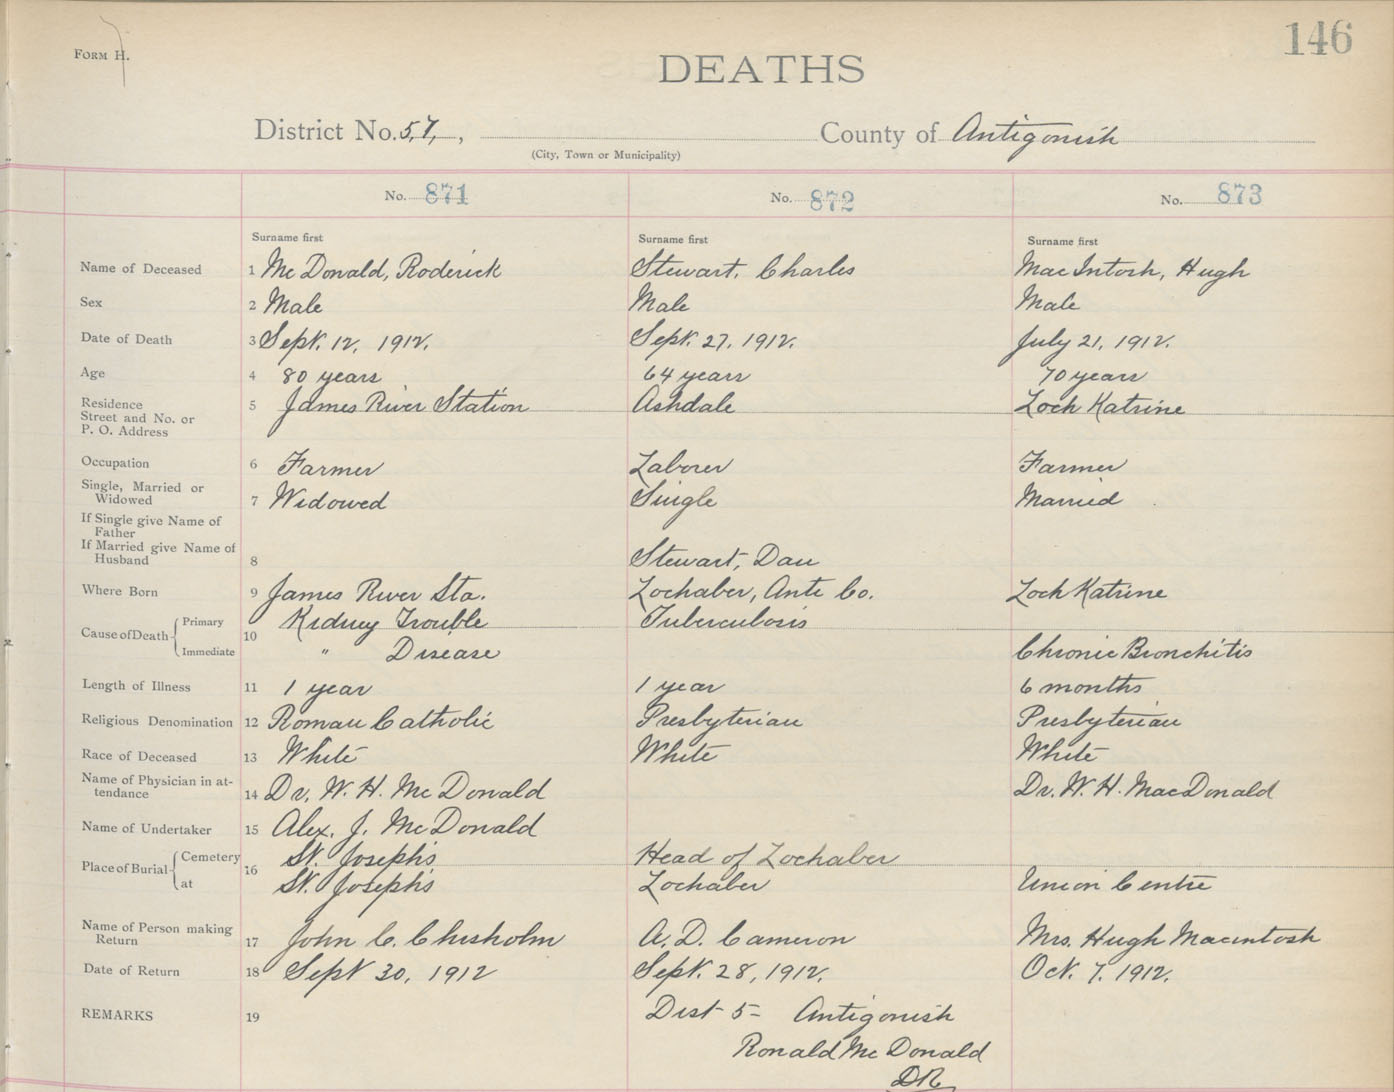 146
FORM H.
DEATHS
District No. 5,7, , County of Antigonish
(City, Town or Municipality)
No. 871 No. 872 No. 873
Surname first Surname first Surname first
Name of Deceased 1 Mc Donald, Roderick Stewart, Charles MacIntosh, Hugh
Sex 2 Male Male Male
Date of Death 3 Sept. 12, 1912. Sept. 27, 1912. July 21, 1912.
Age 4 80 years 64 years 70 years
Residence 5 James River Station Ashdale Loch Katrine
Street and No. or
P. O. Address
Occupation 6 Farmer Laborer Farmer
Single, Married or
Widowed 7 Widowed Single Married
If Single give Name of
Father
If Married give Name of
Husband 8 Stewart, Dan
Where Born 9 James River Sta. Lochaber, Ante Co. Loch Katrine
Cause of Death Primary 10 Kidney Trouble Tuberculosis
Immediate " Disease Chronic Bronchitis
Length of Illness 11 1 year 1 year 6 months
Religious Denomination 12 Roman Catholic Presbyterian Presbyterian
Race of Deceased 13 White White White
Name of Physician in at-
tendance 14 Dr. W. H. Mc Donald Dr. W. H. MacDonald
Name of Undertaker 15 Alex. J. Mc Donald
Place of Burial Cemetery 16 St. Joseph's Head of Lochaber
at St. Joseph's Lochaber Union Centre
Name of Person making
Return 17 John C. Chisholm A. D. Cameron Mrs. Hugh Macintosh
Date of Return 18 Sept 30, 1912 Sept. 28, 1912. Oct. 7, 1912.
REMARKS 19 Dist 5 - Antigonish
Ronald Mc Donald
DR